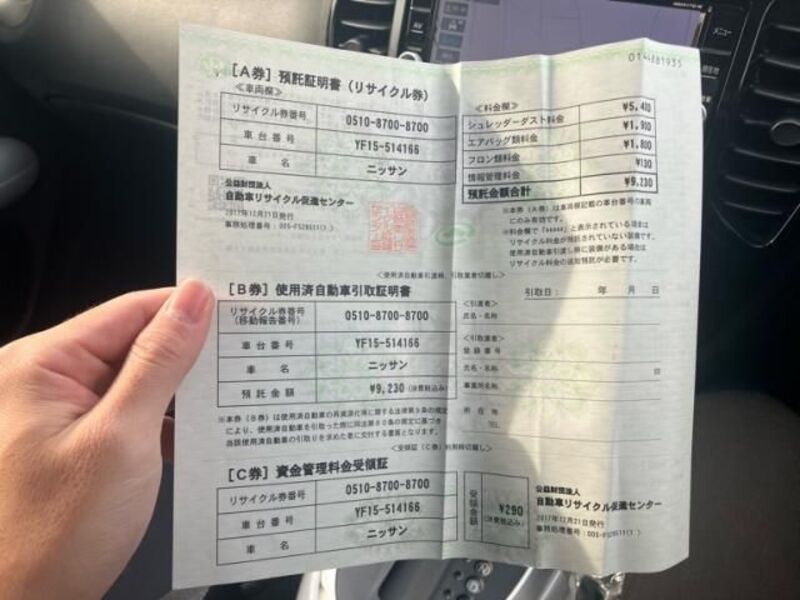 0144881935
[A券] 預託証明書（リサイクル券）
≪車両欄≫
リサイクル券番号 0510-8700-8700
車台番号 YF15-514166
車名 ニッサン
≪料金欄≫
シュレッダーダスト料金 ¥5,400
エアバッグ類料金 ¥1,900
フロン類料金 ¥1,800
情報管理料金 ¥130
預託金額合計 ¥9,230
公益財団法人
自動車リサイクル促進センター
2017年12月21日発行
※本券（A券）は車両欄記載の車台番号の車両
にのみ有効です。
※料金欄で「*****」と表示されている場合は
リサイクル料金が預託されていない装備です。
使用済自動車引渡し時に装備がある場合は
リサイクル料金の追加預託が必要です。
＜使用済自動車引渡時、引取業者切離し＞
[B券] 使用済自動車引取証明書
リサイクル券番号
（移動報告番号） 0510-8700-8700
車台番号 YF15-514166
車名 ニッサン
預託金額 ¥9,230（消費税込み）
引取日： 年 月 日
＜引渡者＞
氏名・名称
＜引取業者＞
登録番号
氏名・名称 印
事業所名称
所在地
TEL
※本券（B券）は使用済自動車の再資源化等に関する法律第9条の規定
により、使用済自動車を引取った際に同法第80条の規定に基づき
当該使用済自動車の引取りを求めた者に交付する書面となります。
[C券] 資金管理料金受領証
リサイクル券番号 0510-8700-8700
車台番号 YF15-514166
車名 ニッサン
受領金額 ¥290
（消費税込み）
公益財団法人
自動車リサイクル促進センター
2017年12月21日発行